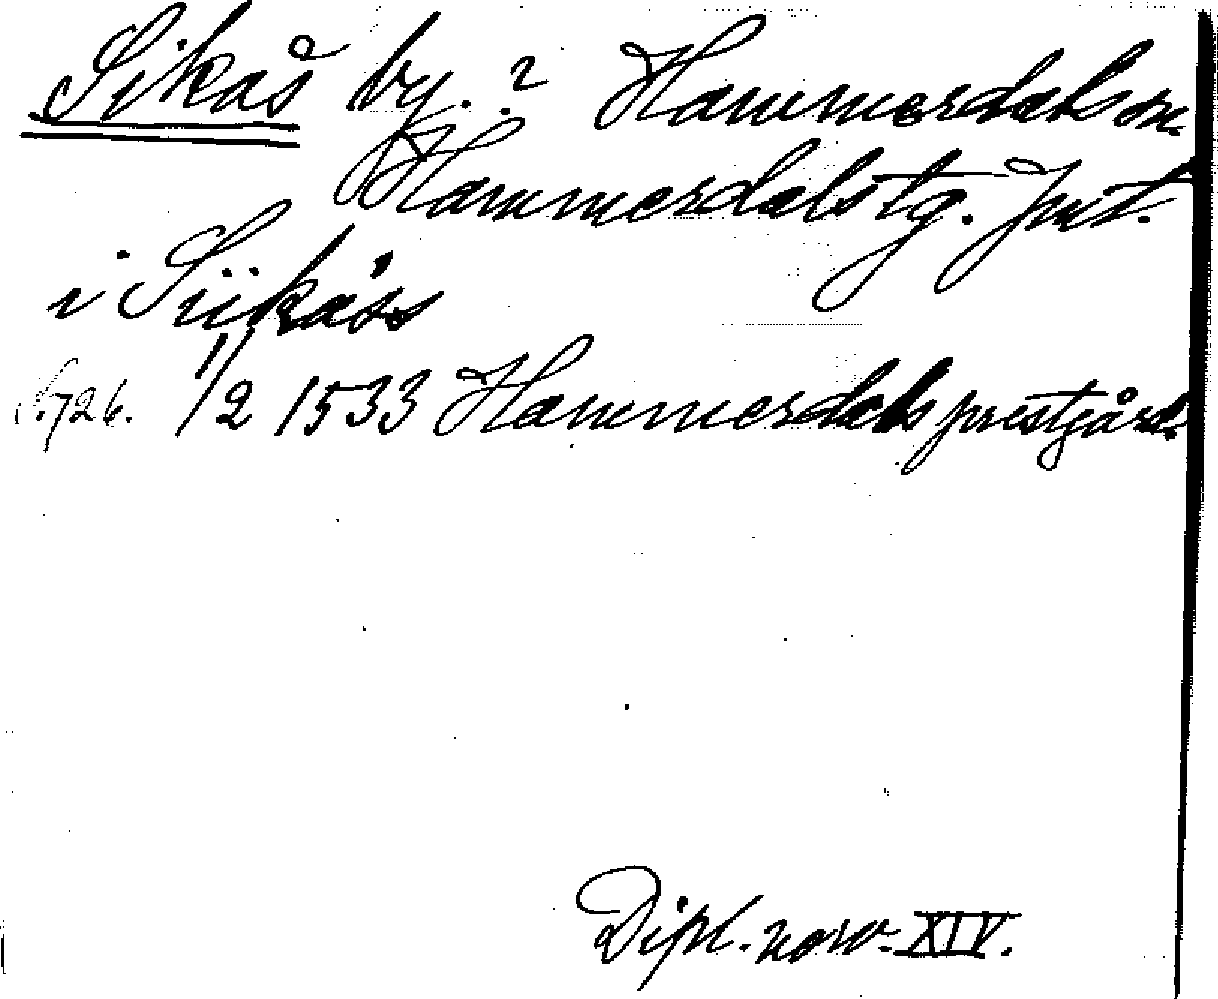 Sikås by. ? Hammerdals sn.
Hammerdals tg. Jmt.
i Siikåss
S. 726. 1/2 1533 Hammerdals prestgård.
Dipl. norv. XIV.